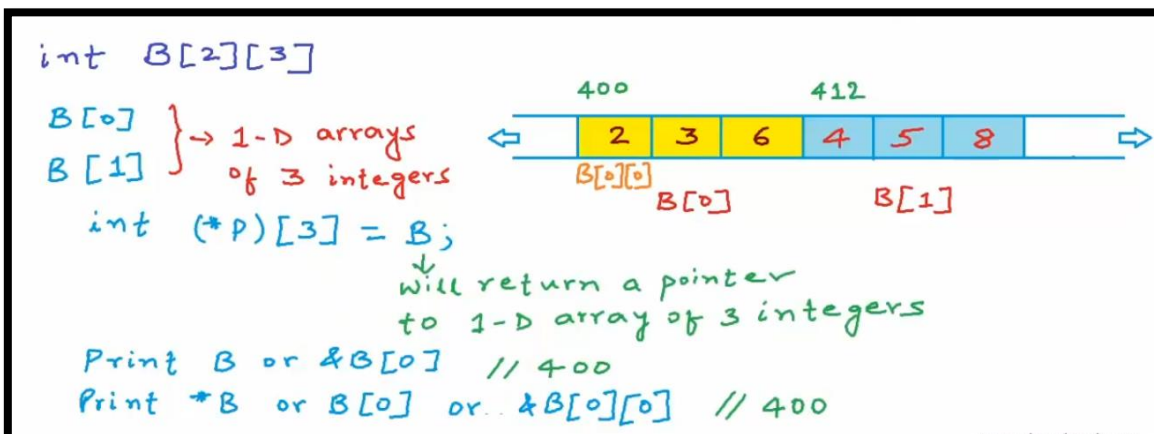 int B[2][3]
400 412
B[0]
B[1]
} → 1-D arrays
of 3 integers
2 3 6 4 5 8
B[0][0]
B[0] B[1]
int (*P)[3] = B;
will return a pointer
to 1-D array of 3 integers
Print B or &B[0] // 400
Print *B or B[0] or.. &B[0][0] // 400